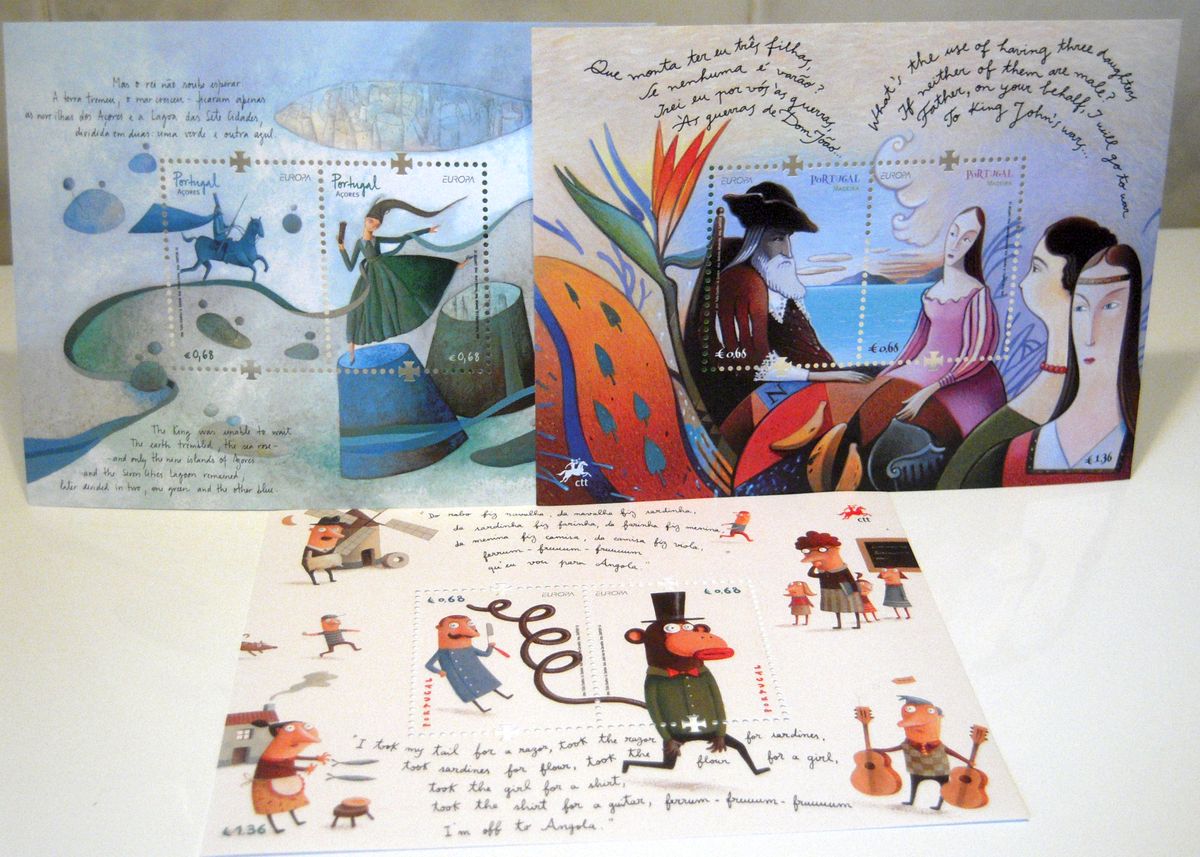 Mas o rei não soube esperar
A terra tremeu, o mar cresceu - ficaram apenas
as nove ilhas dos Açores e a Lagoa das Sete Cidades,
dividida em duas: uma verde e outra azul.
Portugal
AÇORES
EUROPA
Portugal
AÇORES
EUROPA
€ 0,68
€ 0,68
The King was unable to wait
The earth trembled, the sea rose -
and only the nine islands of Açores
and the Seven Cities Lagoon remained,
later divided in two, one green and the other blue.
Que monta ter eu três filhas,
Se nenhuma é varão?
Irei eu por vós às guerras,
Às guerras de Dom João...
What's the use of having three daughters
If neither of them are male?
Father, on your behalf, I will go to war
To King John's wars...
EUROPA
PORTUGAL
MADEIRA
EUROPA
PORTUGAL
MADEIRA
€ 0,68
€ 0,68
€ 1,36
ctt
"Do rabo fiz navalha, da navalha fiz sardinha,
da sardinha fiz farinha, da farinha fiz menina,
da menina fiz camisa, da camisa fiz viola,
ferrum - fruuum - fruuuum
qu'eu vou para Angola."
ctt
€ 0,68
EUROPA
EUROPA
€ 0,68
PORTUGAL
PORTUGAL
"I took my tail for a razor, took the razor for sardines,
took sardines for flour, took the flour for a girl,
took the girl for a shirt,
took the shirt for a guitar, ferrum - fruuum - fruuuum
I'm off to Angola."
€ 1.36